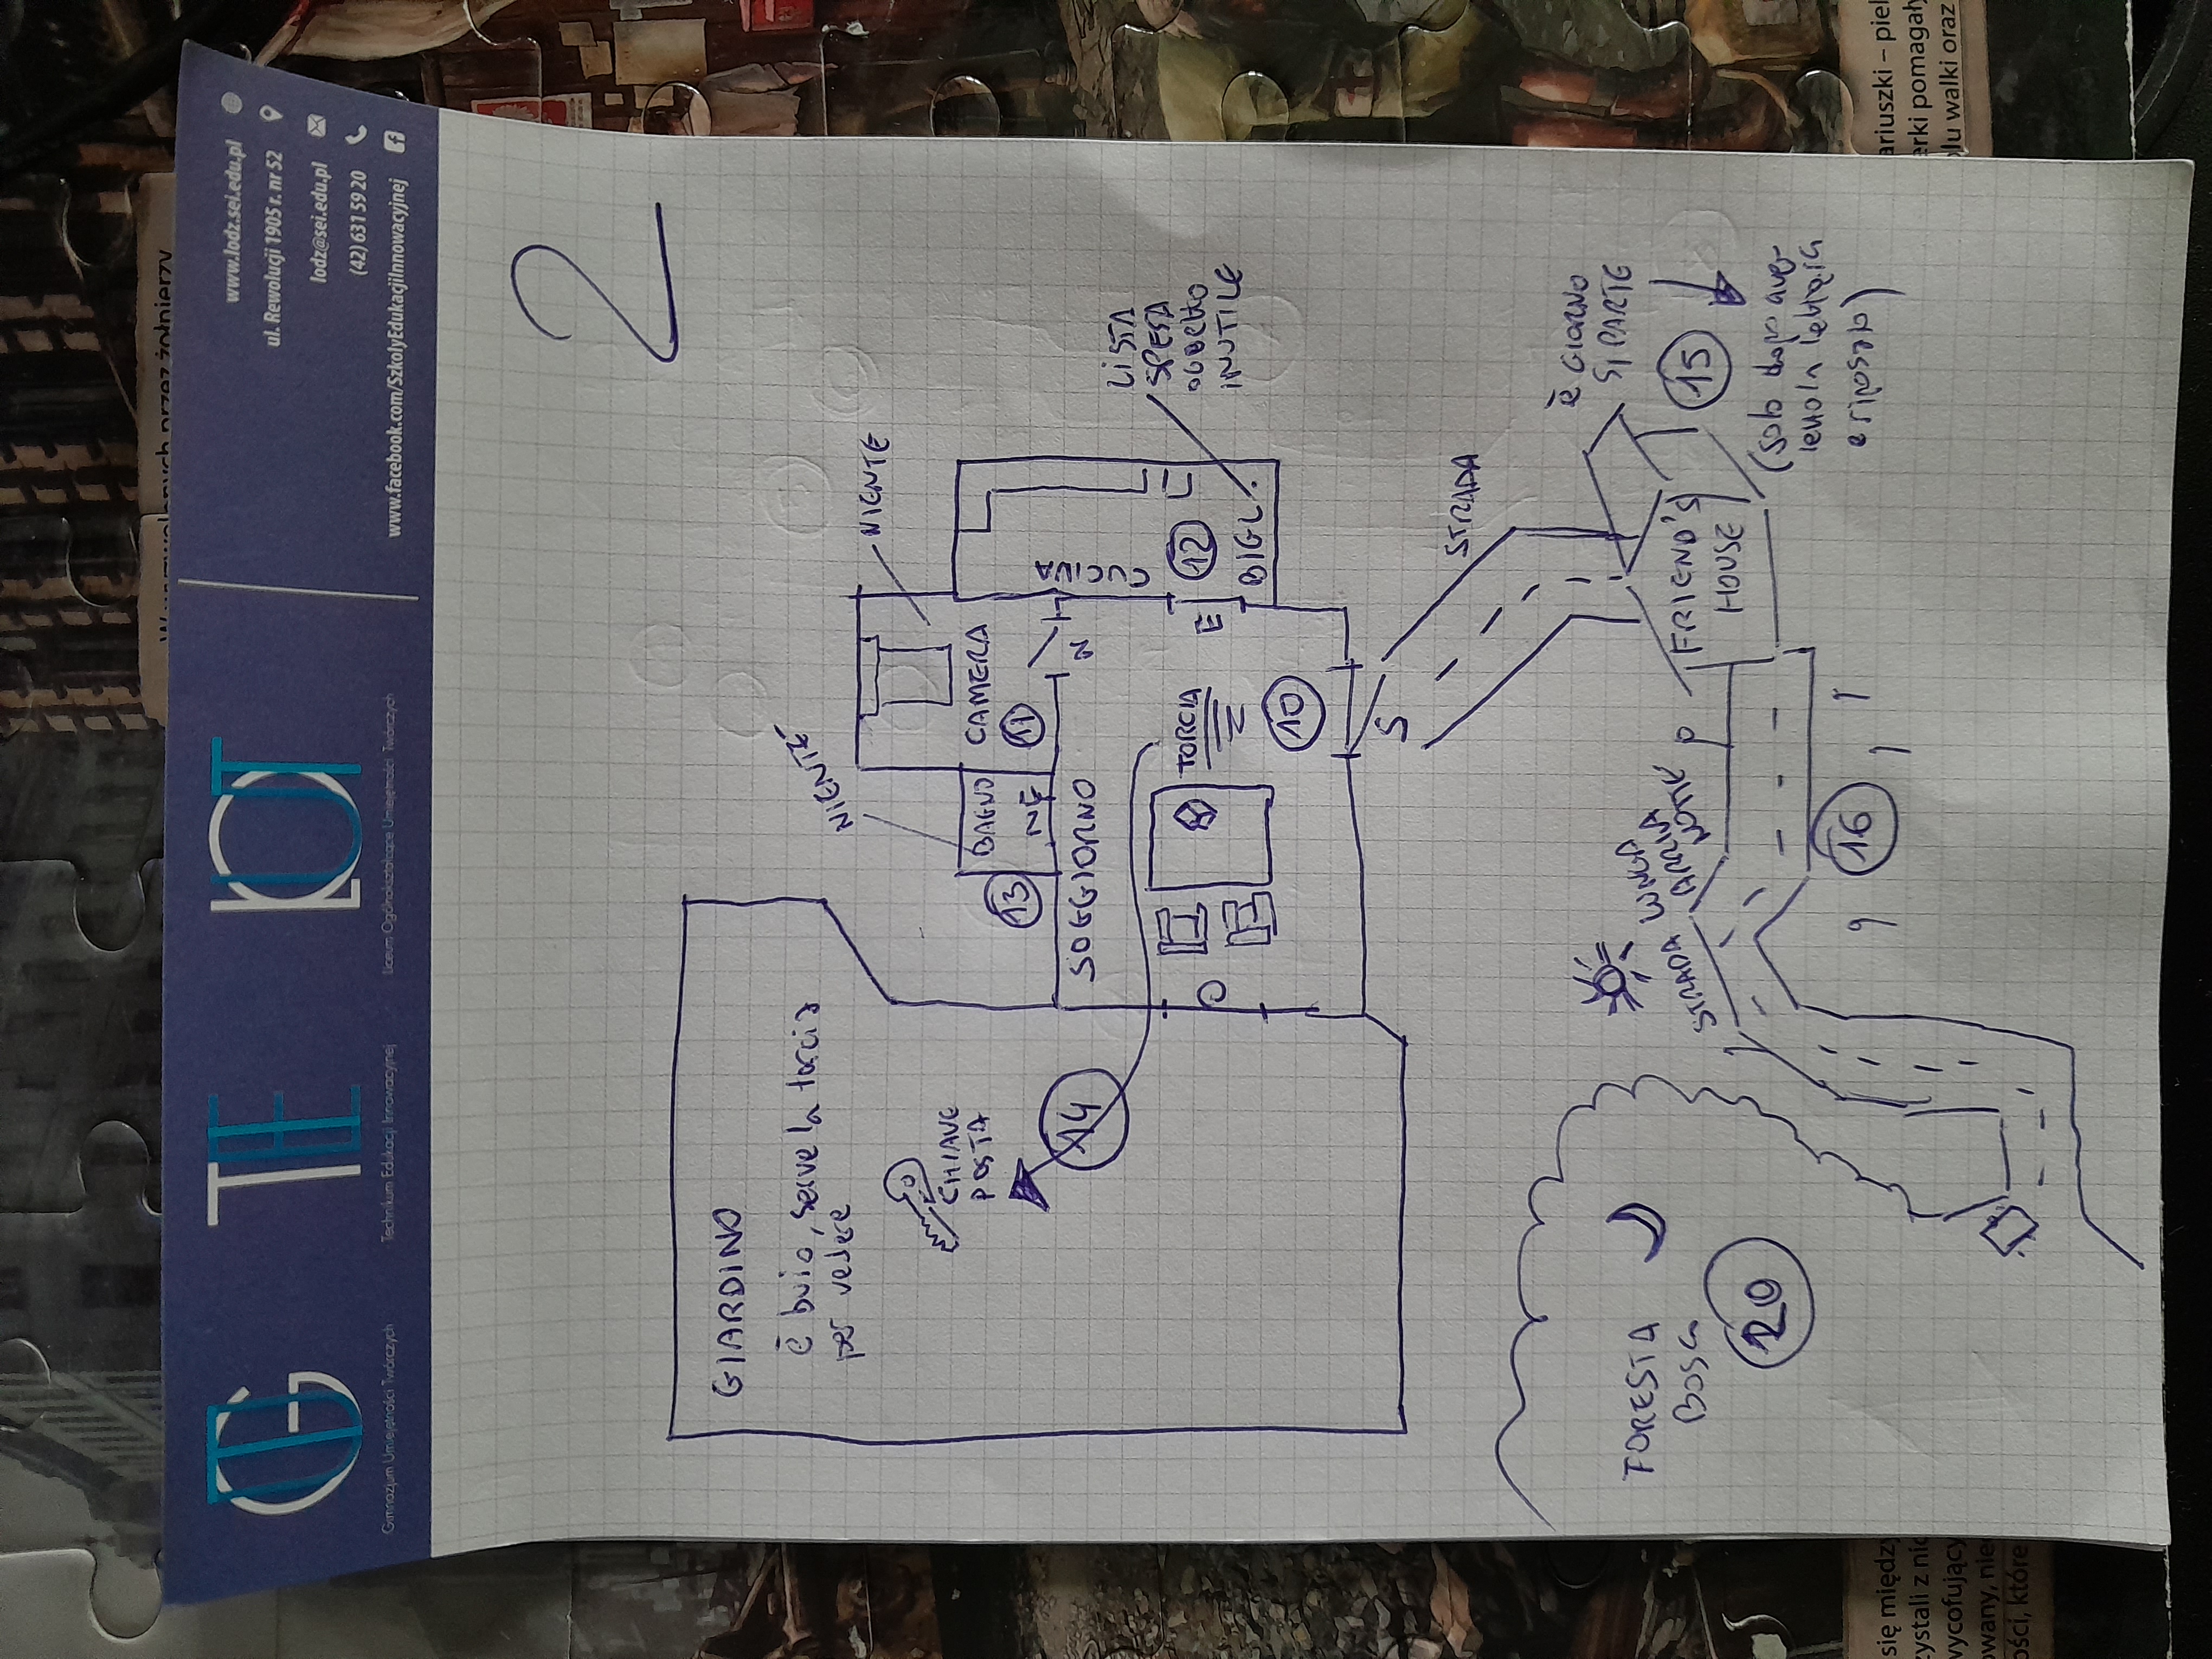 W wyzwolonych przez żołnierzy
GUT
TEI
LOUT
Gimnazjum Umiejętności Twórczych
Technikum Edukacji Innowacyjnej
Liceum Ogólnokształcące Umiejętności Twórczych
www.lodz.sei.edu.pl
ul. Rewolucji 1905 r. nr 52
lodz@sei.edu.pl
(42) 631 59 20
www.facebook.com/SzkolyEdukacjiInnowacyjnej
2
GIARDINO
è buio, serve la torcia
per vedere
CHIAVE
POSTA
14
NIENTE
NIENTE
BAGNO
13
NE
CAMERA
11
N
SOGGIORNO
CUCINA
12
E
BIGL.
LISTA
SPESA
oggetto
INUTILE
O
TORCIA
10
S
STRADA
FORESTA
BOSCO
20
STRADA LUNGA
ARRIVA
NOTTE
FRIEND'S
HOUSE
è GIORNO
SI PARTE
15
(solo dopo aver
letto la lettera
e riposato)
16
się międz
zystali z nic
wycofujący
owany, nie
ości, które
ariuszki – piel
erki pomagały
olu walki oraz